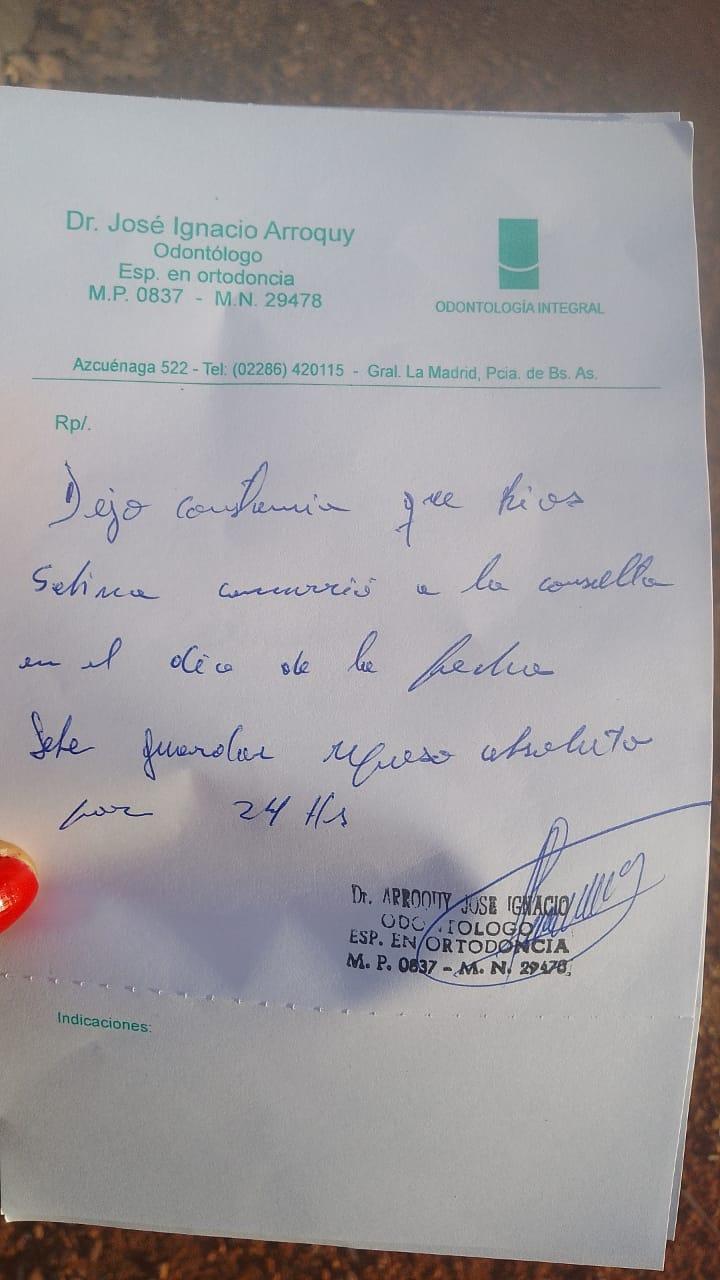 Dr. José Ignacio Arroquy
Odontólogo
Esp. en ortodoncia
M.P. 0837 - M.N. 29478
ODONTOLOGÍA INTEGRAL
Azcuénaga 522 - Tel: (02286) 420115 - Gral. La Madrid, Pcia. de Bs. As.
Rp/.
Dejo constancia que Rios
concurrió a la consulta
en el dia de la fecha
Debe guardar reposo absoluto
por 24 Hs
Dr. ARROQUY JOSE IGNACIO
ODONTOLOGO
ESP. EN ORTODONCIA
M. P. 0837 - M. N. 29478
Indicaciones: